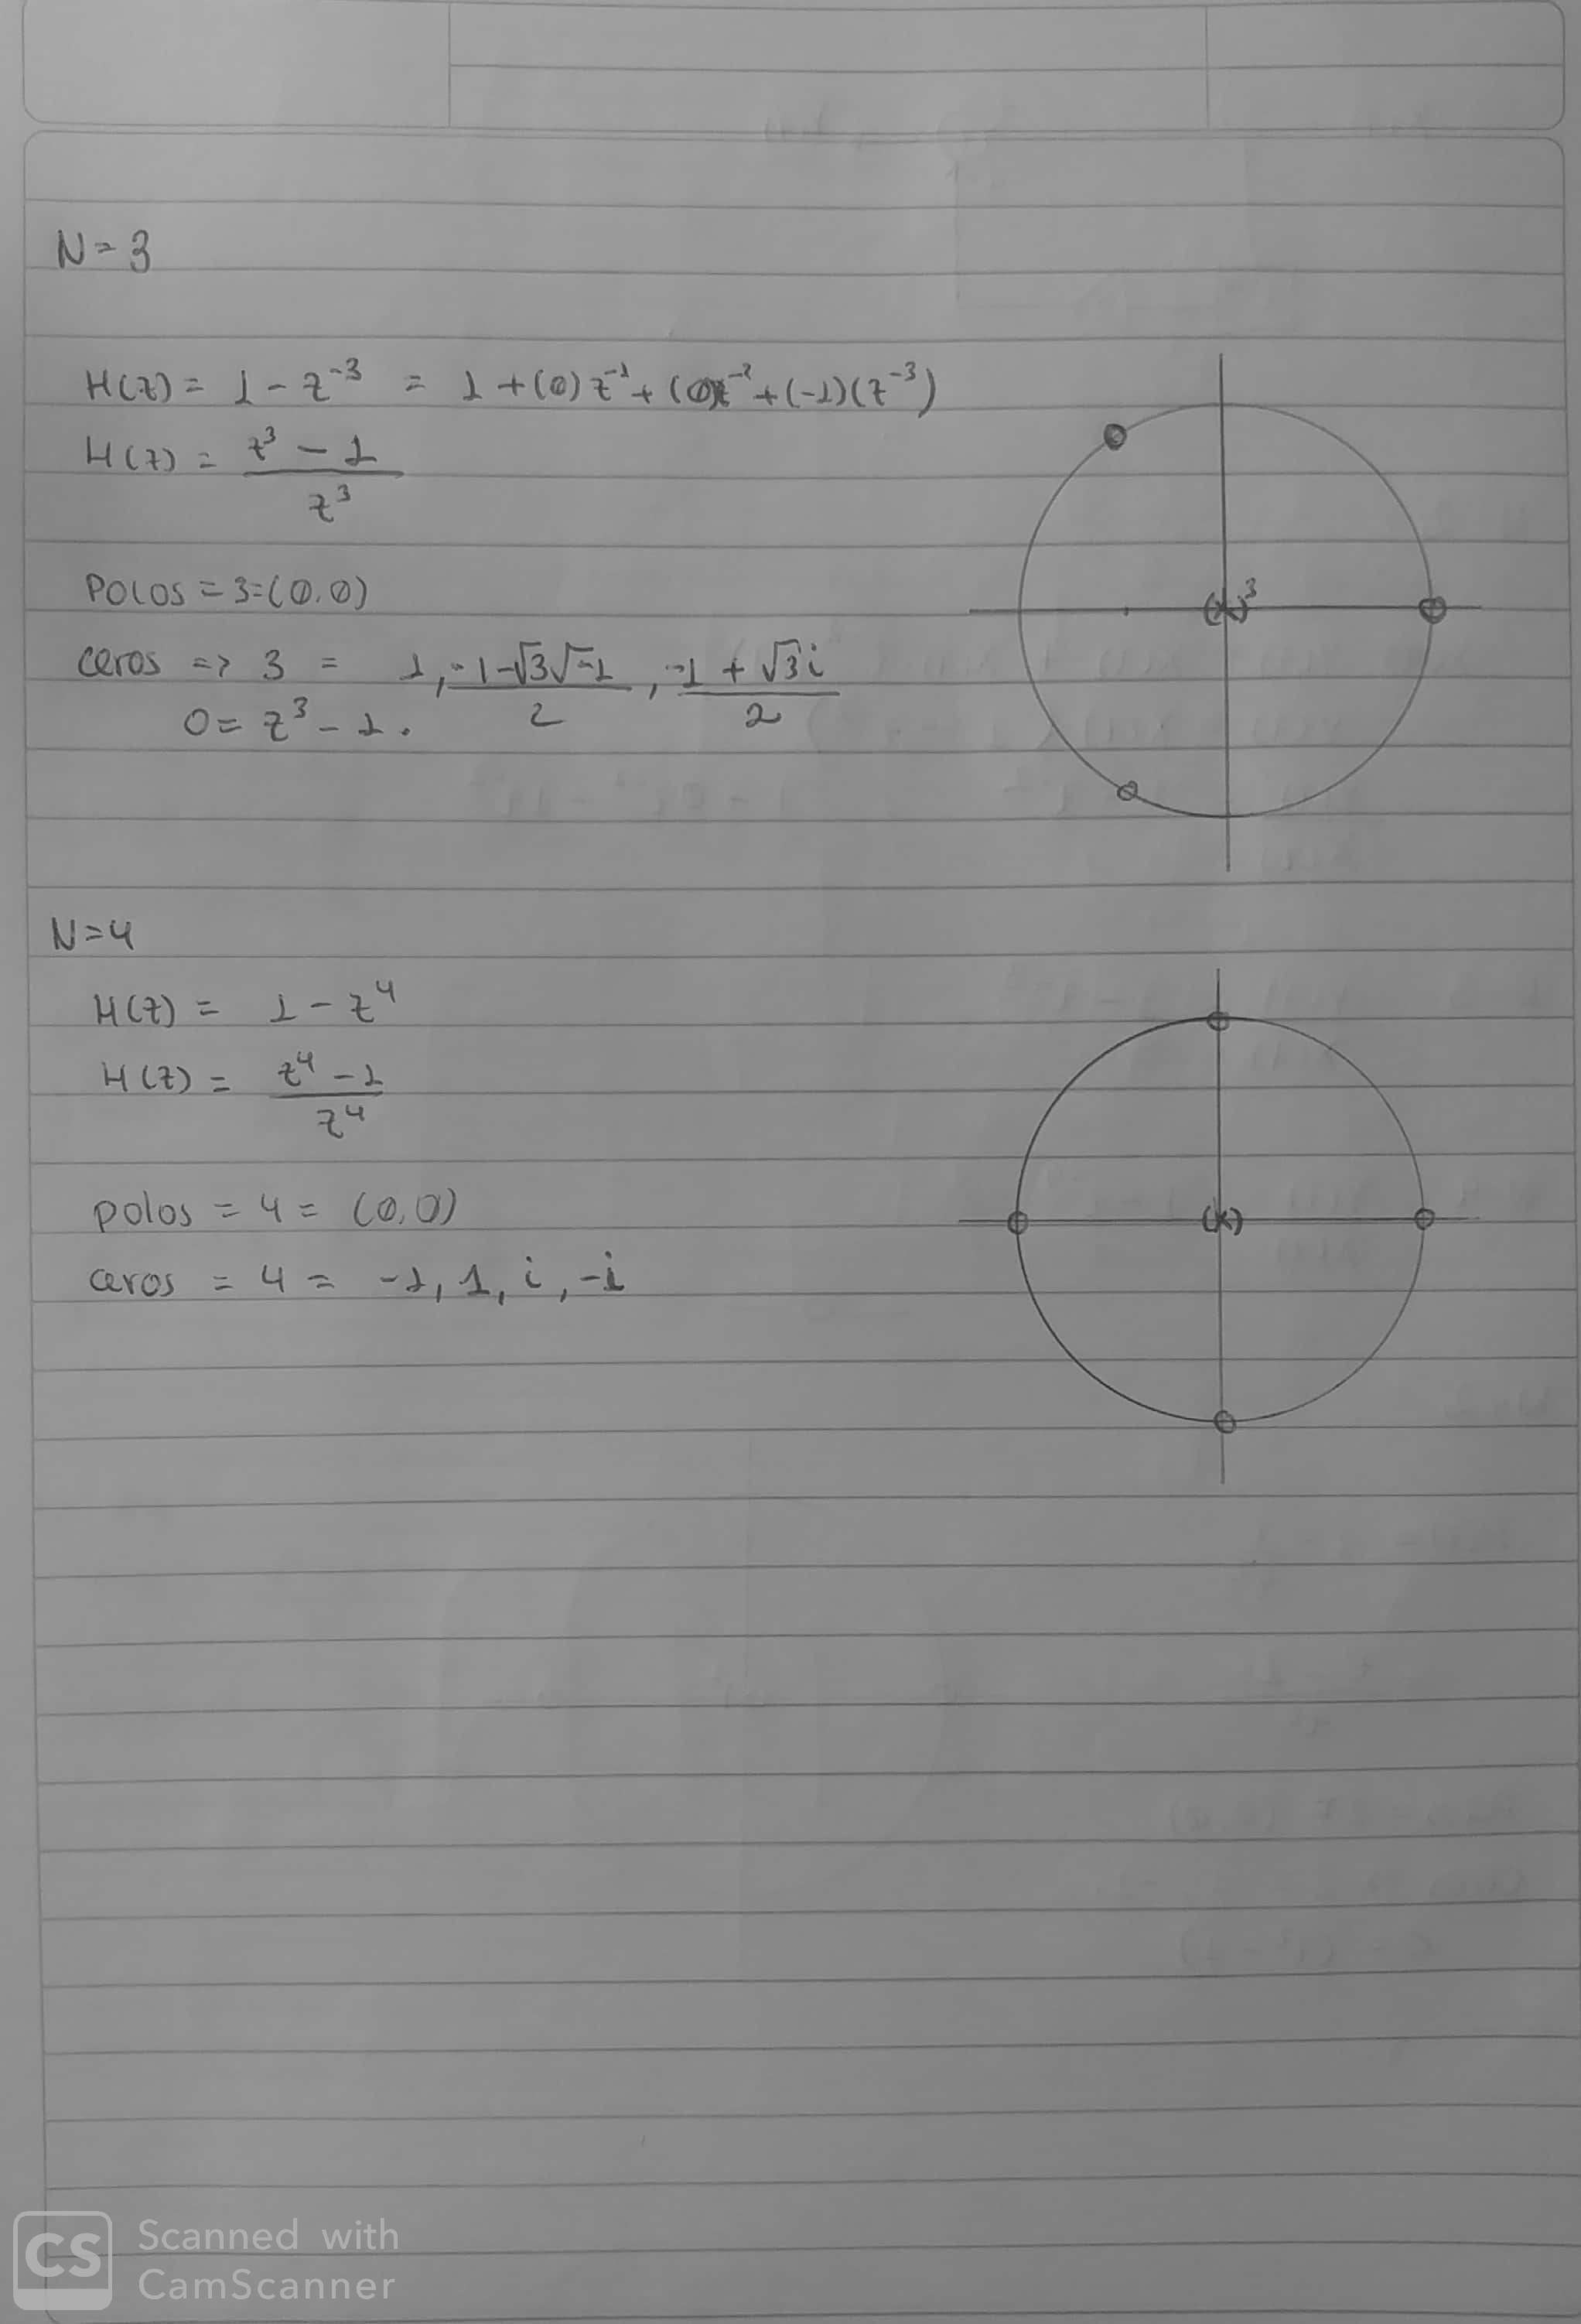 N=3
H(z) = 1 - z⁻³ = 1 + (0) z⁻¹ + (0)z⁻² + (-1)(z⁻³)
H(z) = (z³ - 1)/z³
POLOS = 3 = (0,0)
(x)³
ceros => 3 = 1, (-1-√3√-1)/2, (-1 + √3i)/2
0 = z³ - 1.
N=4
H(z) = 1 - z⁴
H(z) = (z⁴ - 1)/z⁴
polos = 4 = (0,0)
(x)
ceros = 4 = -1, 1, i, -i
CS Scanned with
CamScanner